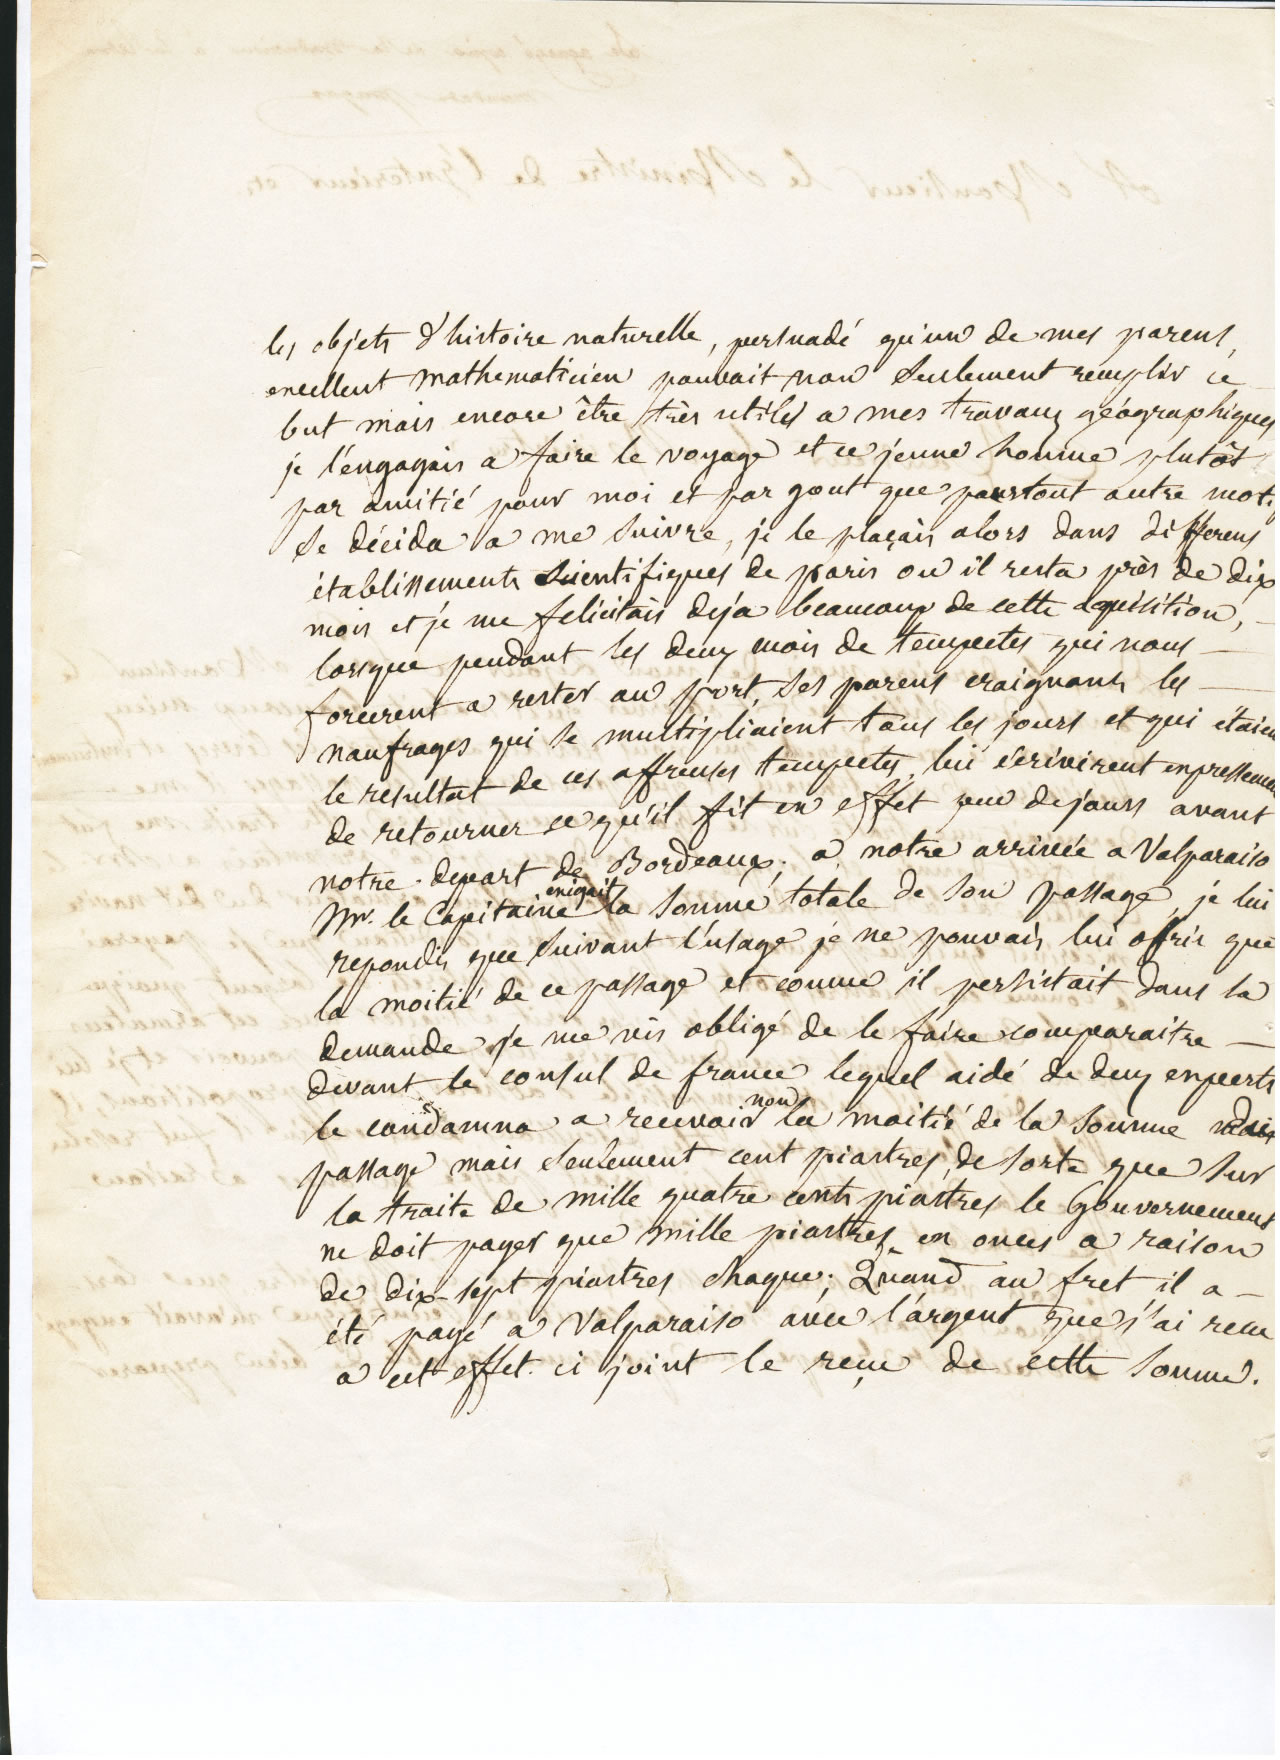 les objets d'histoire naturelle, persuadé qu'un de mes parens,
excellent mathematicien pouvait non seulement remplir ce
but mais encore être très utile a mes travaux géographiques
je l'engageais a faire le voyage et ce jeune homme plutôt
par amitié pour moi et par gout que pour tout autre moti
se décida a me suivre, je le plaçais alors dans differens
établissements scientifiques de paris ou il resta près de dix
mois et je me felicitais deja beaucoup de cette aquisition,
lorsque pendant les deux mois de tempetes qui nous
forcerent a rester au port, ses parens craignants les
naufrages qui se multipliaient tous les jours et qui étaien
le resultat de ces affreuses tempetes, lui écrivirent expressemen
de retourner ce qu'il fit en effet peu de jours avant
notre depart de Bordeaux; a notre arrivée a Valparaiso
Mr. le Capitaine exigait la somme totale de son passage, je lui
repondis que suivant l'usage je ne pouvais lui offrir que
la moitié de ce passage et comme il persistait dans sa
demande je me vis obligé de le faire comparaitre
devant le consul de france lequel aidé de deux experts
le condamna a recevoir non la moitié de la somme du
passage mais seulement cent piastres, de sorte que sur
la traite de mille quatre cents piastres le Gouvernement
ne doit payer que mille piastres en onces a raison
de dix-sept piastres chaque; Quand au fret il a
été payé a Valparaiso avec l'argent que j'ai recu
a cet effet. ci joint le reçu de cette somme.